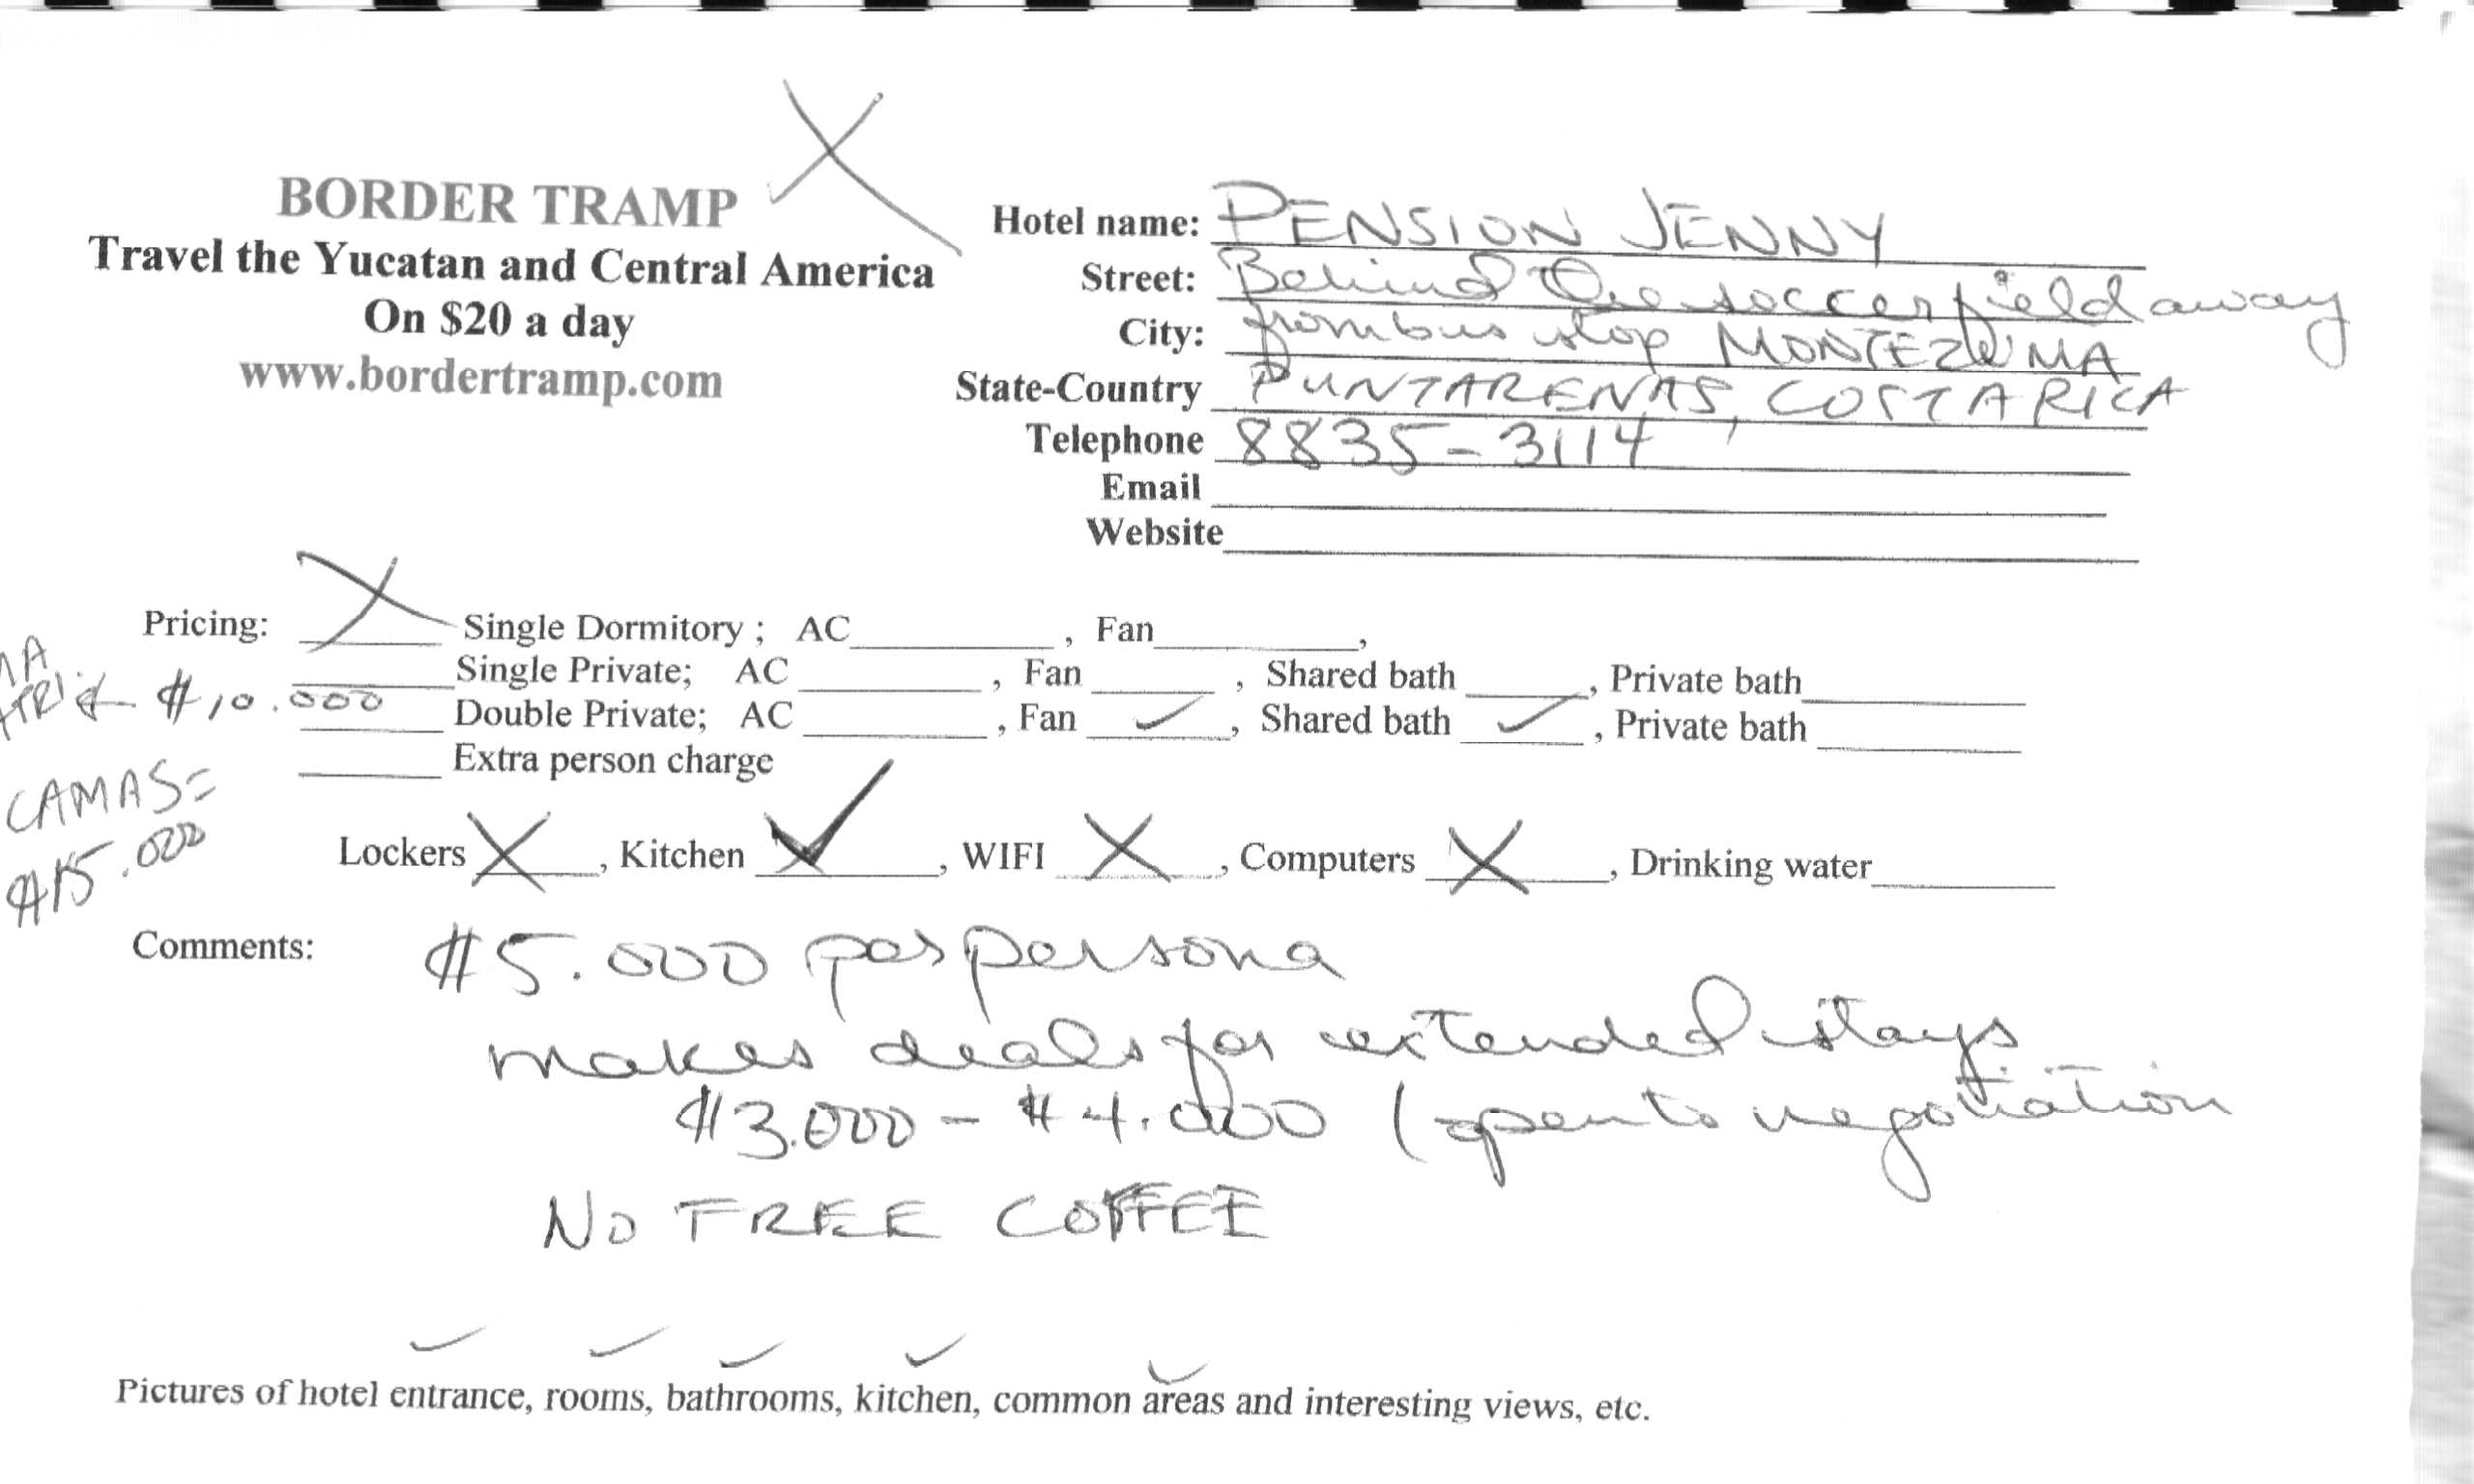 BORDER TRAMP
Travel the Yucatan and Central America
On $20 a day
www.bordertramp.com
Hotel name: PENSION JENNY
Street: Behind the soccer field away
City: from bus stop MONTEZUMA
State-Country PUNTARENAS, COSTA RICA
Telephone 8835-3114
Email
Website
Pricing: X Single Dormitory ; AC , Fan ,
Single Private; AC , Fan , Shared bath , Private bath
₡10.000 Double Private; AC , Fan ✓, Shared bath ✓, Private bath
Extra person charge
CAMAS=
₡15.000
Lockers X, Kitchen ✓, WIFI X, Computers X, Drinking water
Comments: ₡5.000 por persona
makes deals for extended stays
₡3.000 - ₡4.000 (open to negotiation
NO FREE COFFEE
Pictures of hotel entrance, rooms, bathrooms, kitchen, common areas and interesting views, etc.